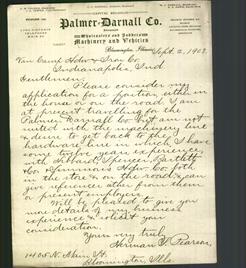 Palmer-Darnall Co.
Wholesalers and Jobbers
Machinery and Vehicles
Bloomington, Illinois, Sept 2, 1903.
Van Camp Hdw & Iron Co.
Indianapolis, Ind.
Gentlemen:
Please consider my
application for a position either in
the house or on the road. I am
at present traveling for the
Palmer Darnall Co. but am not
suited with the machinery line
& desire to get back to the
hardware line in which I have
some twelve years experience,
with Hibbard, Spencer, Bartlett
Co. & Simmons Hdw. Co. both
in store & on the road & can
give references either from them
or present employers.
Will be pleased to give you
more details of my business
experience &
consideration.
Yours very truly
Herman Pearson,
1405 N. Main St.
Bloomington, Ills.